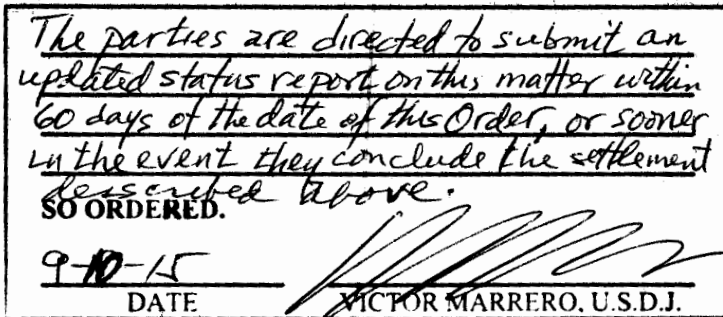 The parties are directed to submit an
updated status report on this matter within
60 days of the date of this Order, or sooner
in the event they conclude the settlement
described above.
SO ORDERED.
9-10-15
DATE VICTOR MARRERO, U.S.D.J.